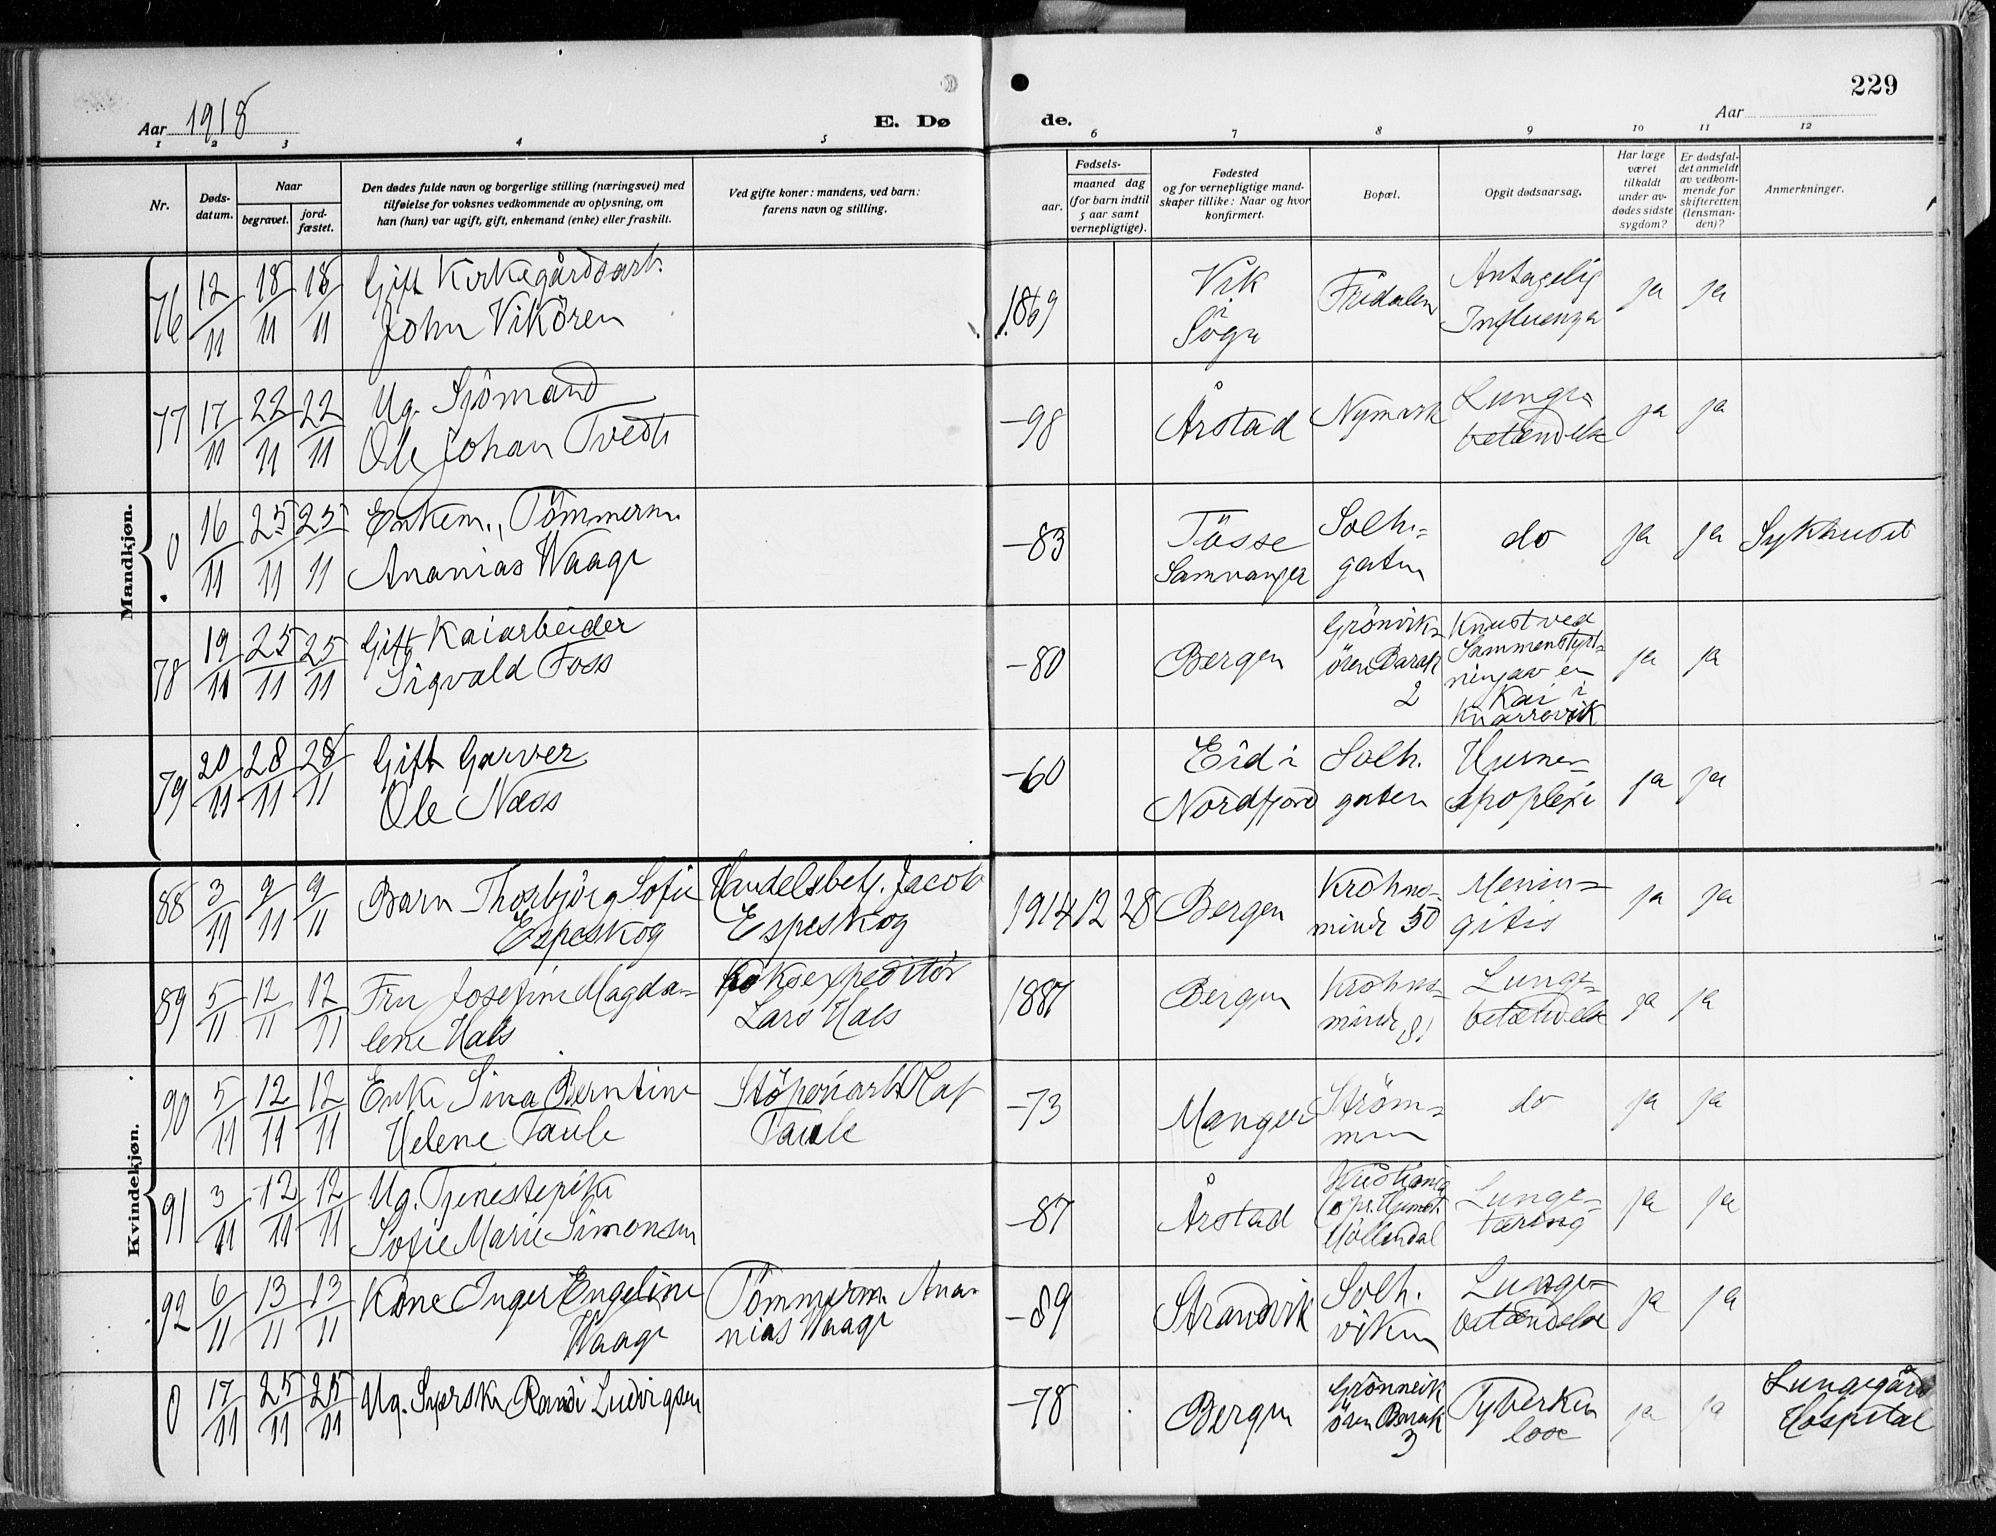 229
Aar 1918
E. Dø
de.
Aar
1 2 3 4 5 6 7 8 9 10 11 12
Nr.
Døds-
datum.
Naar
begravet.
jord-
fæstet.
Den dødes fulde navn og borgerlige stilling (næringsvei) med
tilføielse for voksnes vedkommende av oplysning, om
han (hun) var ugift, gift, enkemand (enke) eller fraskilt.
Ved gifte koner: mandens, ved barn:
farens navn og stilling.
Fødsels-
aar.
maaned dag
(for barn indtil
5 aar samt
vernepligtige).
Fødested
og for vernepligtige mand-
skaper tillike: Naar og hvor
konfirmert.
Bopæl.
Opgit dødsaarsag.
Har læge
været
tilkaldt
under av-
dødes sidste
sygdom?
Er dødsfal-
det anmeldt
av vedkom-
mende for
skifteretten
(lensman-
den)?
Anmerkninger.
Mandkjøn.
76 12/11 18/11 18/11
Gift Kirkegårdsarb.
John Vikören
1869
Vik
i
Sogn
Fridalen
Antagelig
Influenza
ja ja
77 17/11 22/11 22/11
Ug. Sjömand
Ole Johan Tvedt
-98
Årstad
Nymark
Lunge-
betændelse
ja ja
0 16/11 25/11 25/11
Enkem., Tömmerm.
Ananias Waage
-83
Tösse
Samnanger
Solh.-
gaten
do
ja ja
Sykhuset
78 19/11 25/11 25/11
Gift Kaiarbeider
Sigvald Foss
-80
Bergen
Grönvik-
ören Barak
2
Knust ved
Sammenstyrt-
ning av en
Kai i
Knarrevik
ja ja
79 20/11 28/11 28/11
Gift Garver
Ole Næss
-60
Eid i
Nordfjord
Solh.
gaten
Hjerne-
apoplexi
ja ja
Kvindekjøn.
88 3/11 9/11 9/11
Barn Thorbjörg Sofie
Espeskog
Handelsbetj. Jacob
Espeskog
1914 12 28
Bergen
Krohns-
minde 50
Menin-
gitis
ja ja
89 5/11 12/11 12/11
Fru Josefine Magda-
lene Hals
Koksexpeditör
Lars Hals
1887
Bergen
Krohns-
minde 81
Lunge-
betændelse
ja ja
90 5/11 12/11 12/11
Enke Sina Berntine
Helene Taule
Støperiarb. Olaf
Taule
-73
Manger
Ström-
men
do
ja ja
91 3/11 12/11 12/11
Ug. Tjenestepike
Sofie Marie Simonsen
-87
Årstad
Kristiania
Möllendal
Lunge-
tæring
ja ja
92 6/11 13/11 13/11
Kone Inger Engeline
Waage
Tömmerm. Ana-
nias Waage
-89
Strandvik
Solh.
viken
Lunge-
betændelse
ja ja
0 17/11 25/11 25/11
Ug. Syerske Randi Ludvigsen
-78
Bergen
Grönnevik
ören Barak
3
Tyberku
lose
ja ja
Lungegård
Hospital